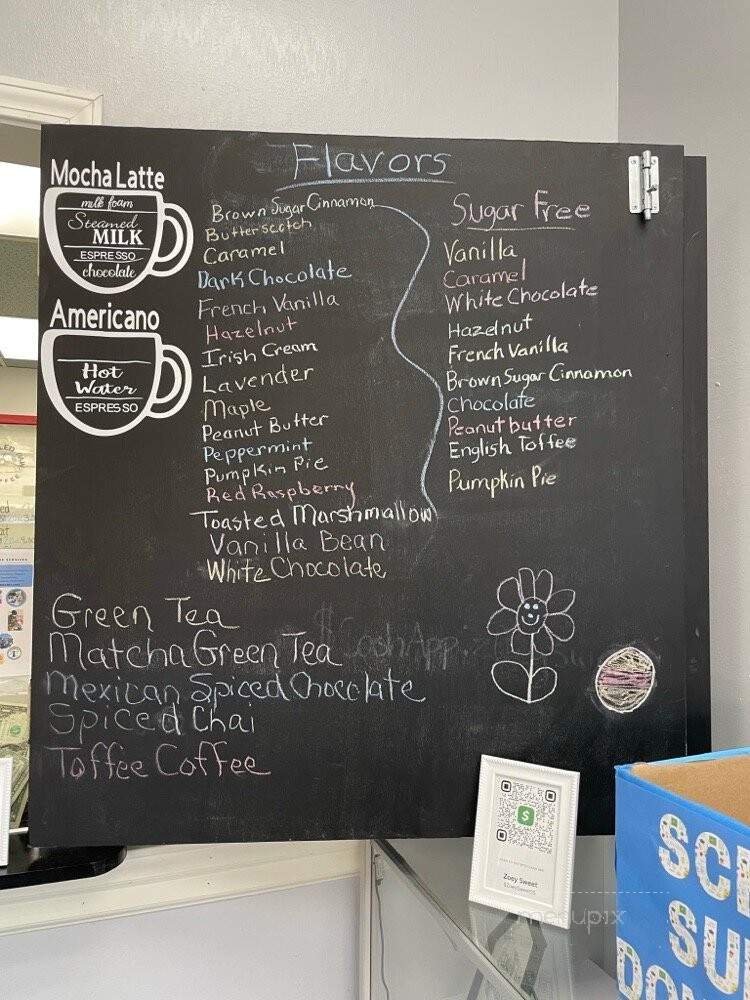 Flavors
Mocha Latte
milk foam
Steamed
MILK
ESPRESSO
chocolate
Americano
Hot
Water
ESPRESSO
Brown Sugar Cinnamon
Butterscotch
Caramel
Dark Chocolate
French Vanilla
Hazelnut
Irish Cream
Lavender
Maple
Peanut Butter
Peppermint
Pumpkin Pie
Red Raspberry
Toasted Marshmallow
Vanilla Bean
White Chocolate
Sugar Free
Vanilla
Caramel
White Chocolate
Hazelnut
French Vanilla
Brown Sugar Cinnamon
Chocolate
Peanut butter
English Toffee
Pumpkin Pie
Green Tea
Matcha Green Tea
Mexican Spiced Chocolate
Spiced Chai
Toffee Coffee
$CashApp
$
Zoey Sweet
SU
menupix